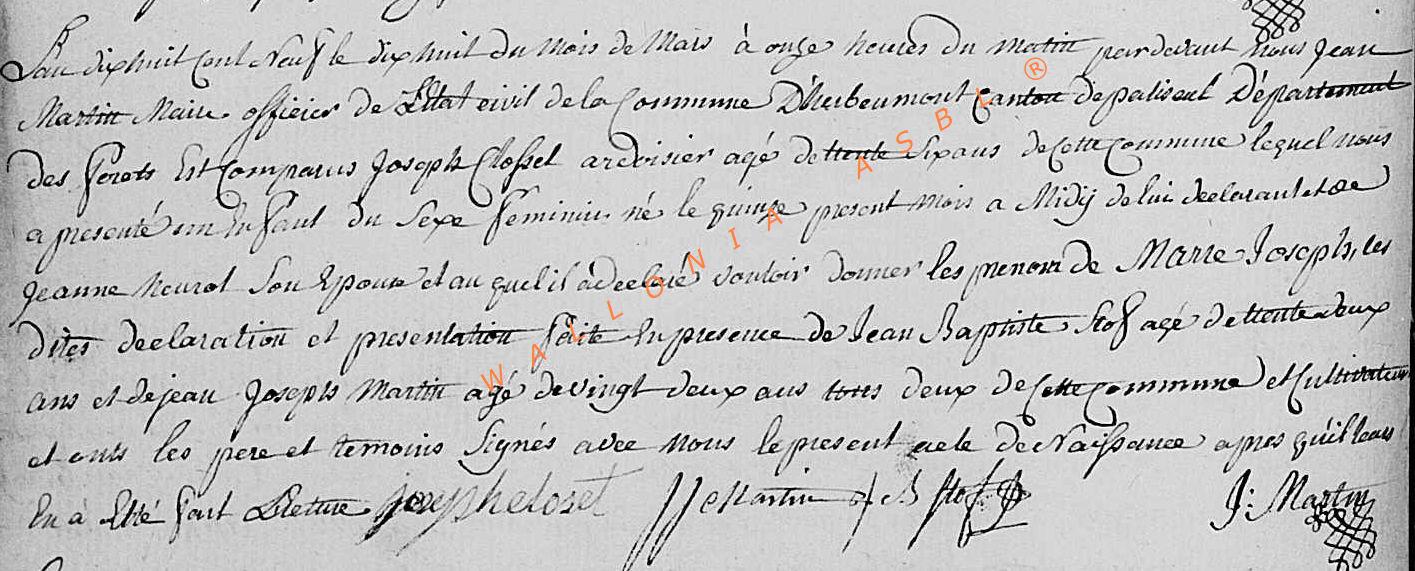 L'an dixhuit Cent Neuf le dixhuit du Mois de Mars à onze heures du matin pardevant Nous Jean
Martin Maire officier de L'Etat civil de la Commune D'herbeumont Canton de paliseul Département
des forets Est Comparus Joseph Closset ardoisier agé de trente Six ans de Cette Commune lequel nous
a presenté un Enfant du Sexe feminin né le quinze present mois a Midÿ de lui declarant et de
Jeanne Neurot Son Epouse et au quel il a declaré vouloir donner les prenom de Marie Joseph, les
dites declaration et presentation faite En presence de Jean Baptiste Stof agé de trente deux
ans et de jean Joseph Martin agé de vingt deux ans tous deux de Cette Commune et Cultivateur
et onts les pere et temoins Signés avec Nous le present acte de Naissance apres qu'il leurs
En à Etté fait Lecture Joseph closet JJ Martin J B Stof J: Martin
WALLONIA ASBL ®